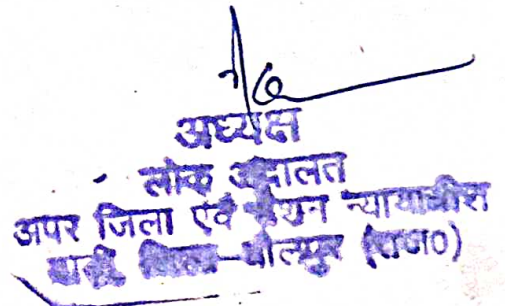 अध्यक्ष
लोक अदालत
अपर जिला एवं सेशन न्यायाधीश
बाड़ी जिला-धौलपुर (राज०)